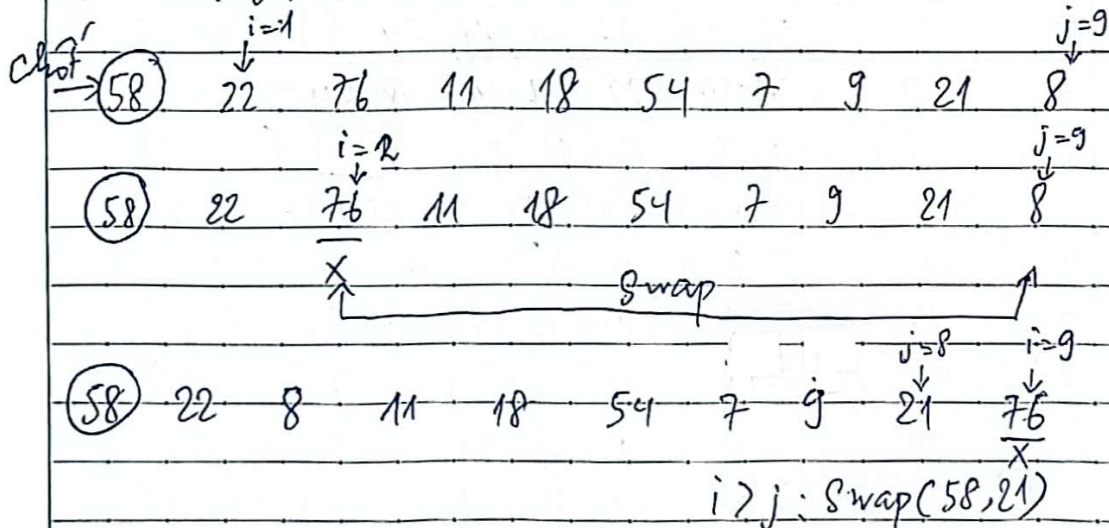 i=1 j=9
chốt 58 22 76 11 18 54 7 9 21 8
i=2 j=9
58 22 76 11 18 54 7 9 21 8
X
Swap
j=8 i=9
58 22 8 11 18 54 7 9 21 76
X
i > j : Swap(58,21)